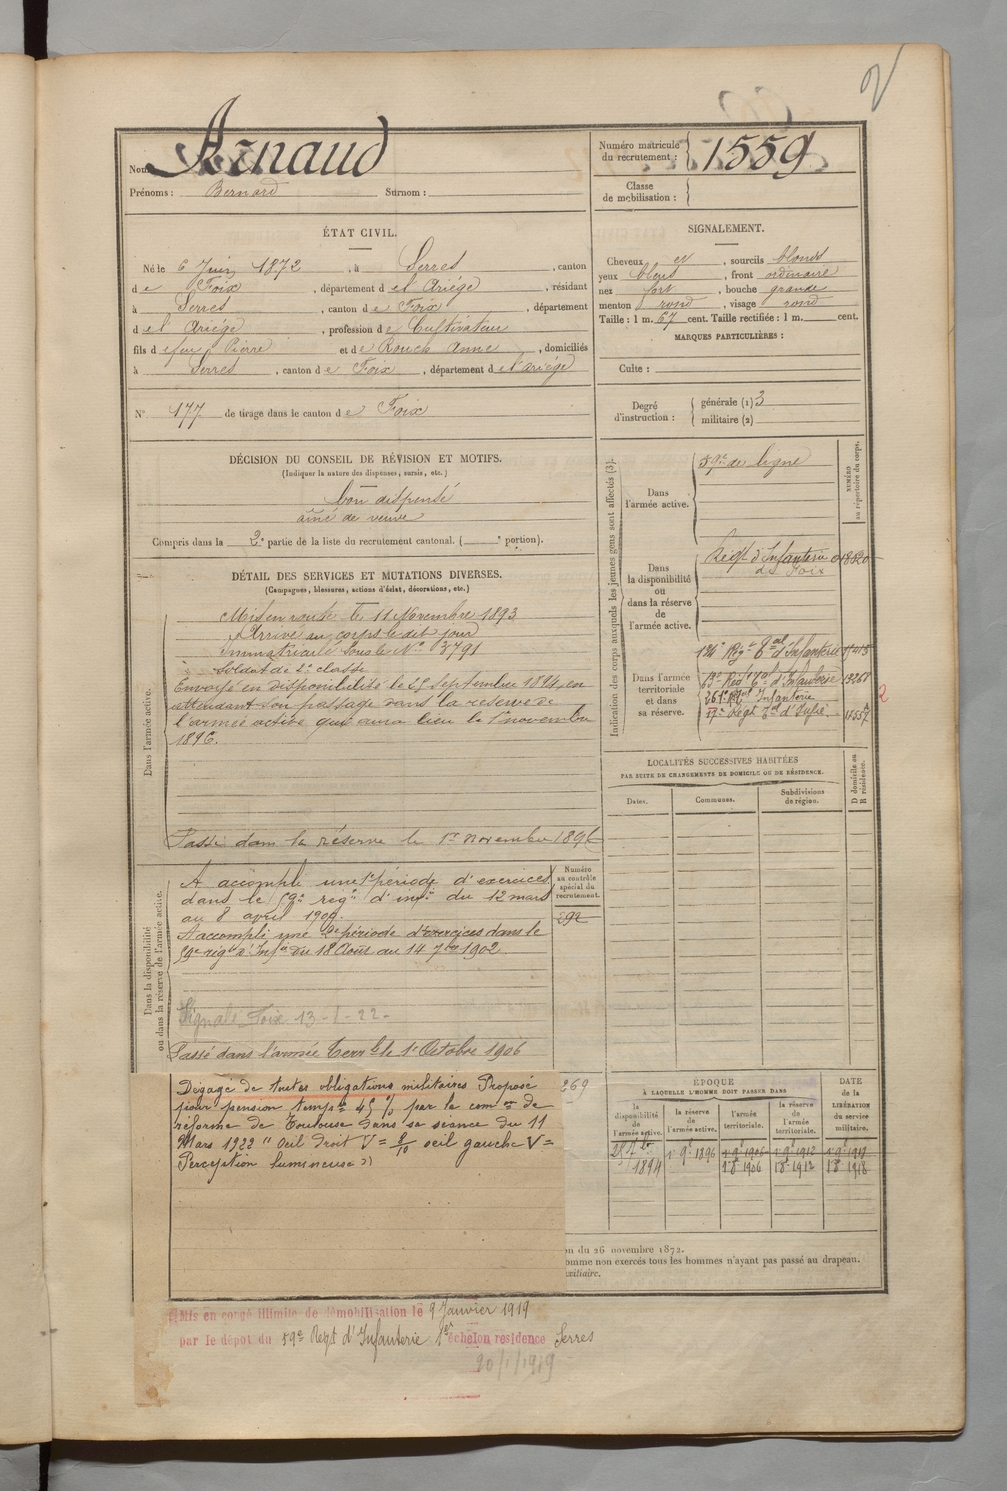 Nom : Arnaud
Prénoms : Bernard Surnom :
Numéro matricule du recrutement : 1559
Classe de mobilisation :
ÉTAT CIVIL.
Né le 6 Juin 1872, à Serres, canton
de Foix, département de l'Ariège, résidant
à Serres, canton de Foix, département
de l'Ariège, profession de Cultivateur
fils de feu Pierre et de Rouch Anne, domiciliés
à Serres, canton de Foix, département de l'ariège
N° 177 de tirage dans le canton de Foix
SIGNALEMENT.
Cheveux et, sourcils blonds
yeux bleus, front ordinaire
nez fort, bouche grande
menton rond, visage rond
Taille : 1 m. 67 cent. Taille rectifiée : 1 m. cent.
MARQUES PARTICULIÈRES :
Culte :
Degré d'instruction :
générale (1) 3
militaire (2)
DÉCISION DU CONSEIL DE RÉVISION ET MOTIFS.
(Indiquer la nature des dispenses, sursis, etc.)
bon dispensé
aîné de veuve
Compris dans la 2e partie de la liste du recrutement cantonal. ( e portion).
DÉTAIL DES SERVICES ET MUTATIONS DIVERSES.
(Campagnes, blessures, actions d'éclat, décorations, etc.)
Dans l'armée active.
Mis en route le 11 Novembre 1893
Arrivé au corps le dit jour
Immatriculé sous le N° 3791
Soldat de 2e classe
Envoyé en disponibilité le 25 Septembre 1894, en
attendant son passage dans la réserve de
l'armée active qui aura lieu le 1er novembre
1896.
Passé dans la réserve le 1er novembre 1896
Dans la disponibilité ou dans la réserve de l'armée active.
A accompli une 1e période d'exercices
dans le 59e régt d'infie du 12 mars
au 8 avril 1900.
A accompli une 2e période d'exercices dans le
59e régt d'Infie du 18 Août au 14 7bre 1902
Signalé Foix 13-1-22-
Passé dans l'armée Terrle le 1er Octobre 1906
Numéro au contrôle spécial du recrutement.
292
269
Dégagé de toutes obligations militaires Proposé
pour pension tempre 45 % par la comon de
réforme de Toulouse dans sa séance du 11
Mars 1922 " Oeil droit V = 8/10 oeil gauche V =
Perception lumineuse "
Mis en congé illimité de démobilisation le 9 Janvier 1919
par le dépôt du 59e Regt d'Infanterie 1er échelon résidence Serres
20/1/1919
Indication des corps auxquels les jeunes gens sont affectés (3).
NUMÉRO au répertoire du corps.
Dans l'armée active.
59e de ligne
Dans la disponibilité ou dans la réserve de l'armée active.
Régt d'Infanterie 01820
de Foix
Dans l'armée territoriale et dans sa réserve.
Régt Tal d'Infanterie
Regt Tal d'Infanterie 13268
Infanterie
Régt Tal d'Infie
2
LOCALITÉS SUCCESSIVES HABITÉES
PAR SUITE DE CHANGEMENTS DE DOMICILE OU DE RÉSIDENCE.
Dates. Communes. Subdivisions de région.
D domicile ou R résidence.
ÉPOQUE
À LAQUELLE L'HOMME DOIT PASSER DANS
DATE de la LIBÉRATION du service militaire.
la disponibilité de l'armée active.
la réserve de l'armée active.
l'armée territoriale.
la réserve de l'armée territoriale.
25 7bre 1894
1er 9e 1896
1er 9e 1906
1er 9e 1912
1er 9e 1918
1er 8e 1906
1er 8e 1912
1er 8e 1918
on du 26 novembre 1872.
omme non exercés tous les hommes n'ayant pas passé au drapeau.
uxiliaire.